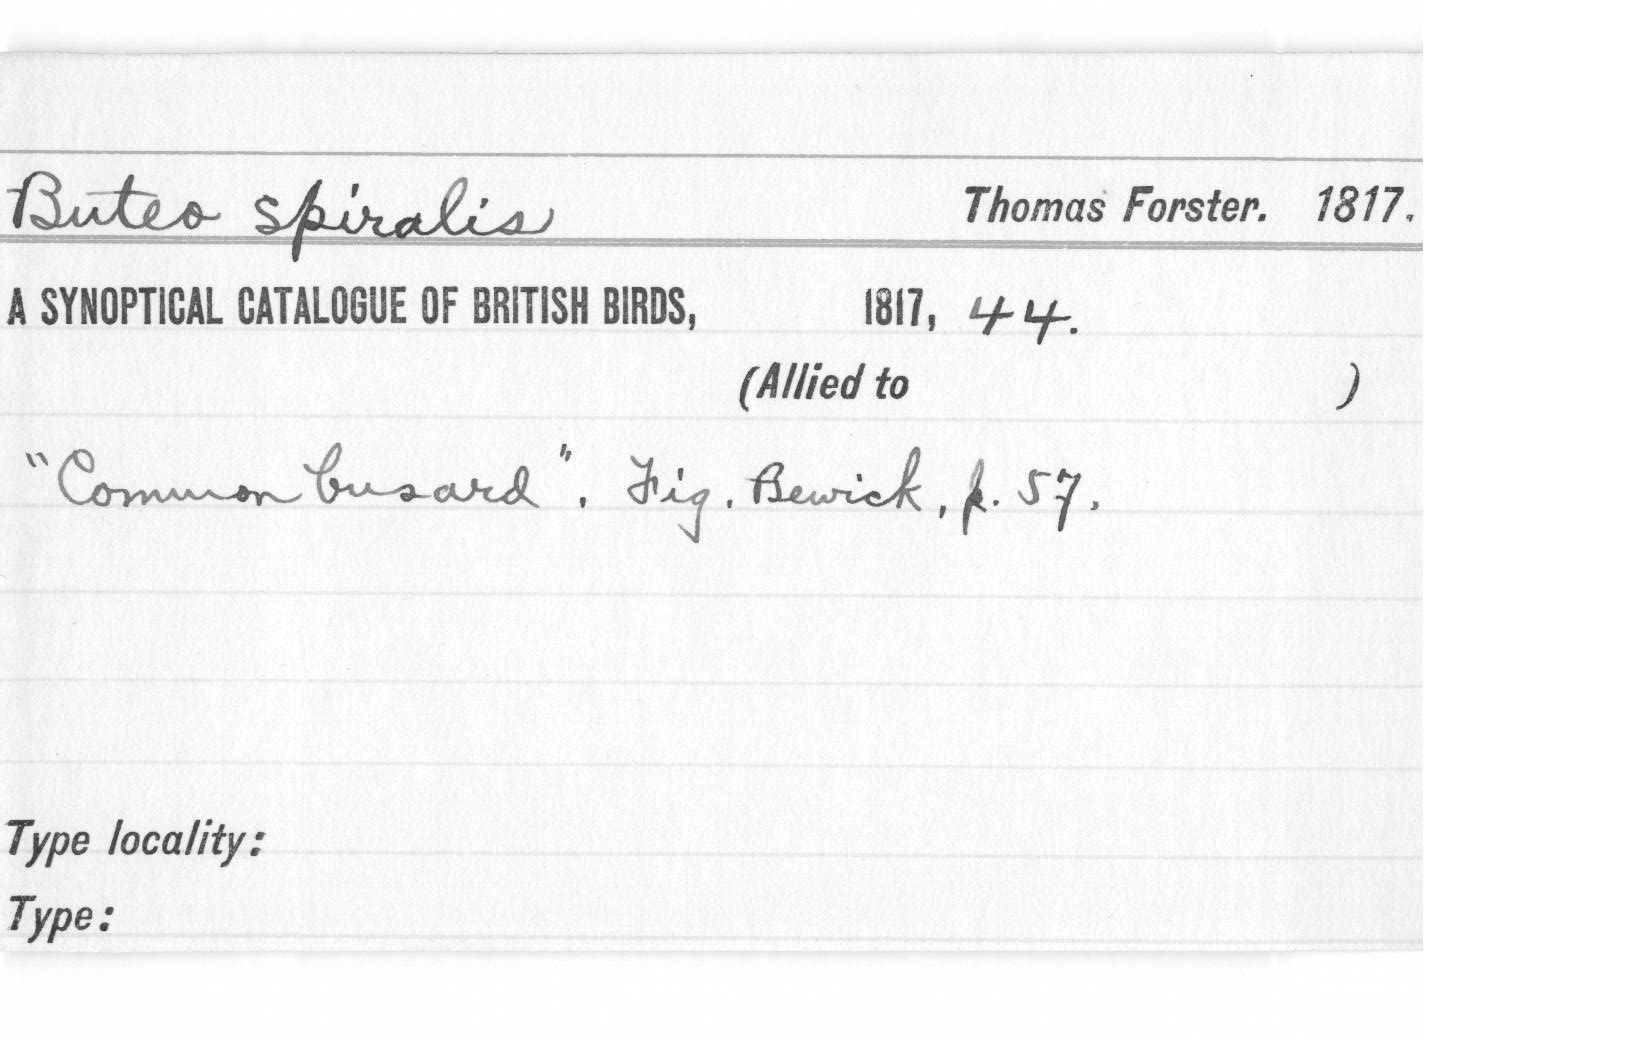 Buteo spiralis Thomas Forster. 1817.
A SYNOPTICAL CATALOGUE OF BRITISH BIRDS, 1817, 44.
(Allied to )
"Common busard". Fig. Bewick, p. 57.
Type locality:
Type: